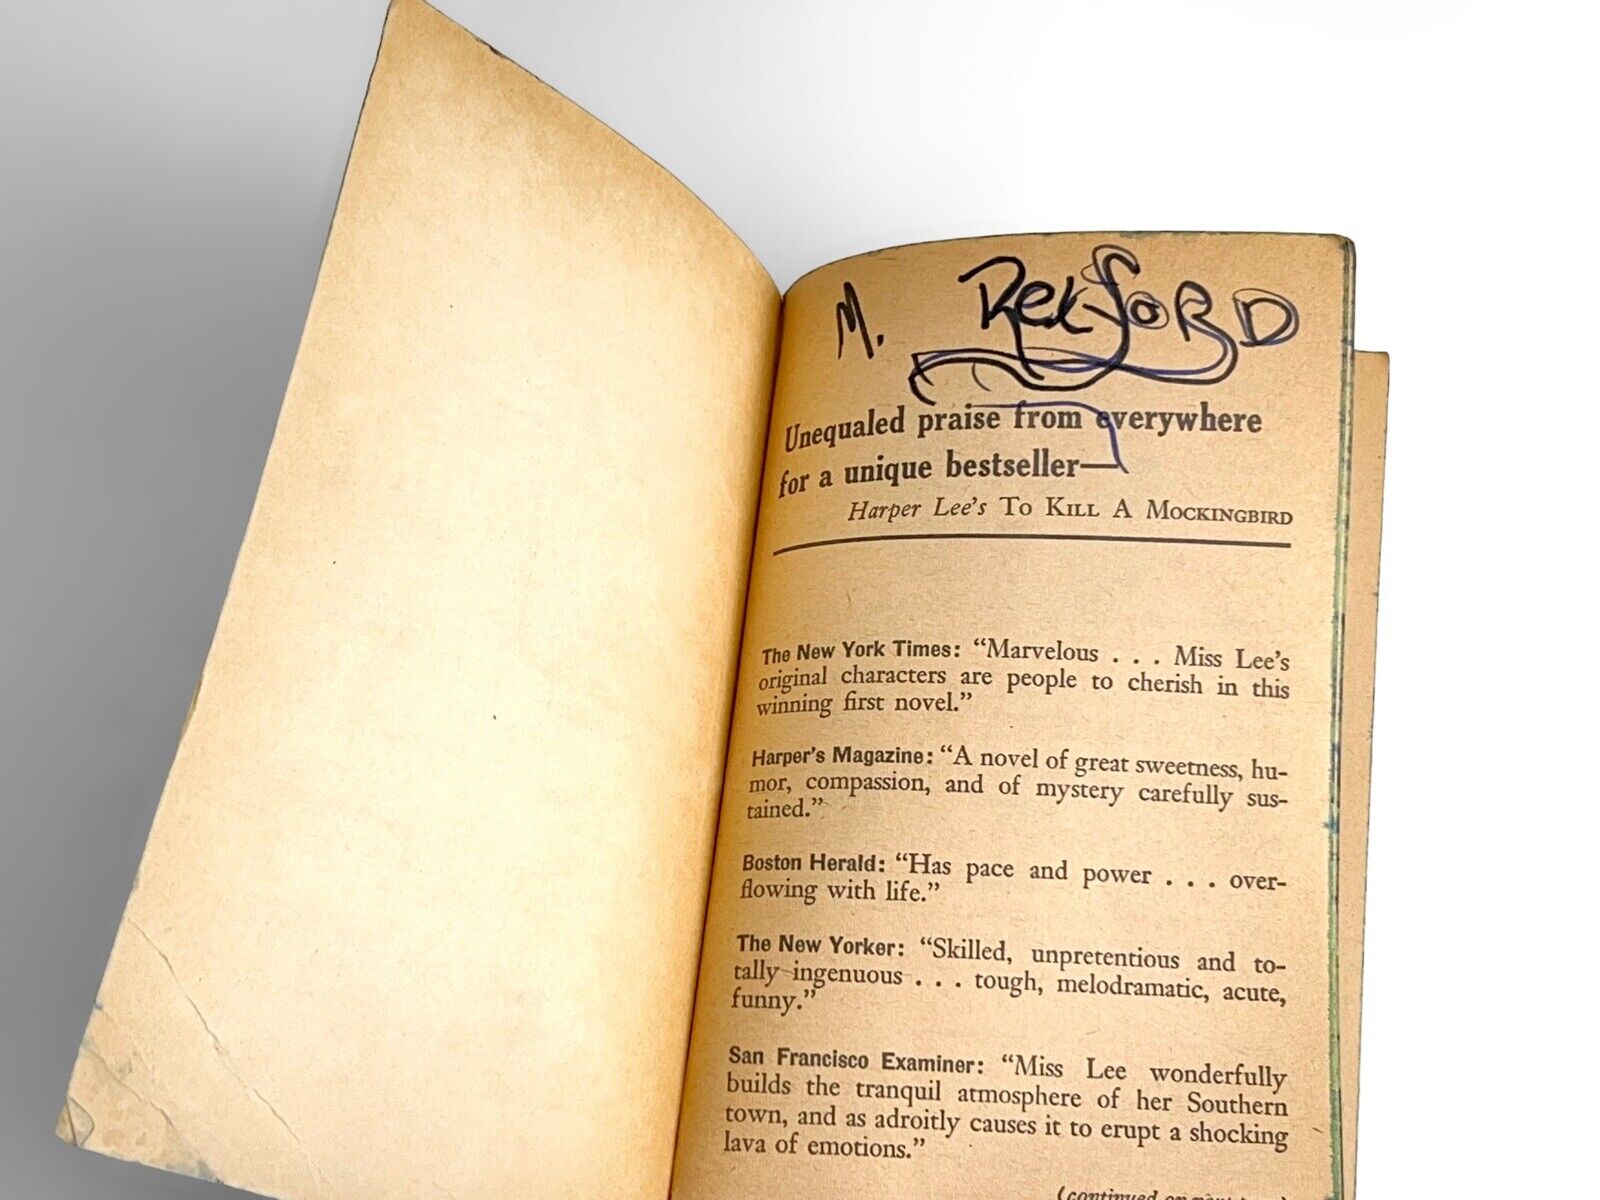 M. RexfoRD
Unequaled praise from everywhere
for a unique bestseller—
Harper Lee's To Kill A Mockingbird
The New York Times: “Marvelous . . . Miss Lee's
original characters are people to cherish in this
winning first novel.”
Harper's Magazine: “A novel of great sweetness, hu-
mor, compassion, and of mystery carefully sus-
tained.”
Boston Herald: “Has pace and power . . . over-
flowing with life.”
The New Yorker: “Skilled, unpretentious and to-
tally ingenuous . . . tough, melodramatic, acute,
funny.”
San Francisco Examiner: “Miss Lee wonderfully
builds the tranquil atmosphere of her Southern
town, and as adroitly causes it to erupt a shocking
lava of emotions.”
(continued on next